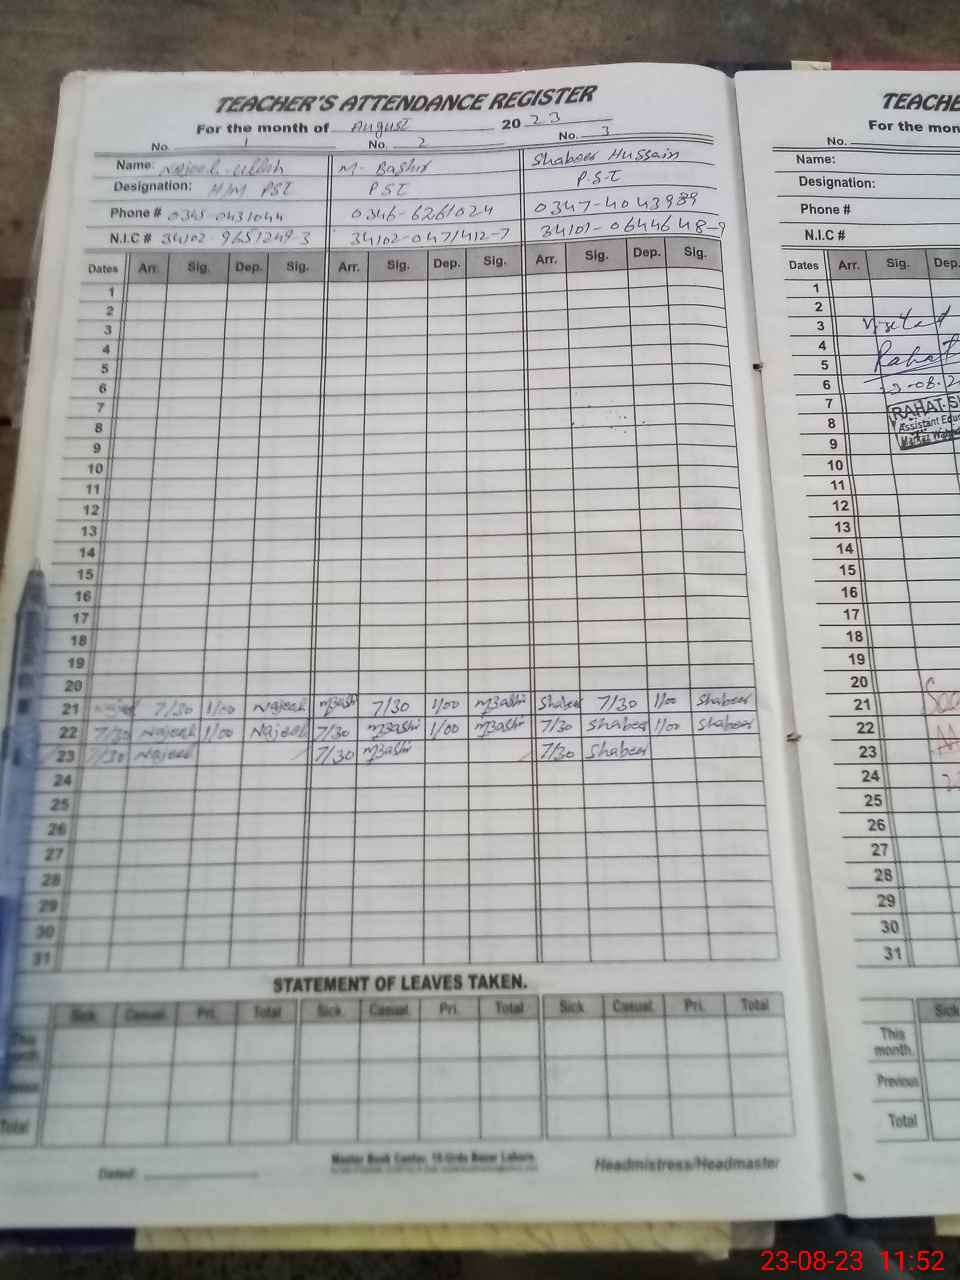 TEACHER'S ATTENDANCE REGISTER
For the month of August 2023
No. 1 No. 2 No. 3
Name: Najeeb-Ullah M- Bashir Shabeer Hussain
Designation: H/M PST PST P.S.T
Phone # 0345 0431044 0346-6261024 0347-4043989
N.I.C # 34102-9651249-3 34102-0471412-7 34101-0644648-9
Dates Arr. Sig. Dep. Sig. Arr. Sig. Dep. Sig. Arr. Sig. Dep. Sig.
1
2
3
4
5
6
7
8
9
10
11
12
13
14
15
16
17
18
19
20
21 7/30 1/00 Najeeb MBashir 7/30 1/00 MBashir Shabeer 7/30 1/00 Shabeer
22 7/30 Najeeb 1/00 Najeeb 7/30 MBashir 1/00 MBashir 7/30 Shabeer 1/00 Shabeer
23 7/30 Najeeb 7/30 MBashir 7/30 Shabeer
24
25
26
27
28
29
30
31
STATEMENT OF LEAVES TAKEN.
Sick Casual Pri. Total Sick Casual Pri. Total Sick Casual Pri. Total
This month.
Total
Dated:
Master Book Center, 10 Urdu Bazar Lahore.
Headmistress/Headmaster
TEACHE
For the mon
No.
Name:
Designation:
Phone #
N.I.C #
Dates Arr. Sig. Dep.
1
2
3 Visited
4
5 Rahat
6
7 RAHAT S
8 Assistant Edu
9 Markaz
10
11
12
13
14
15
16
17
18
19
20
21
22
23
24
25
26
27
28
29
30
31
Sick
This month.
Previous
Total
23-08-23 11:52